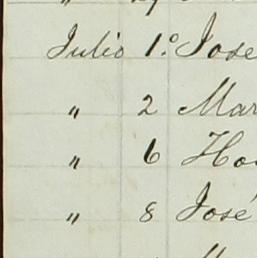 Julio 1.º Jose
" 2 Mar
" 6 Ho
" 8 José